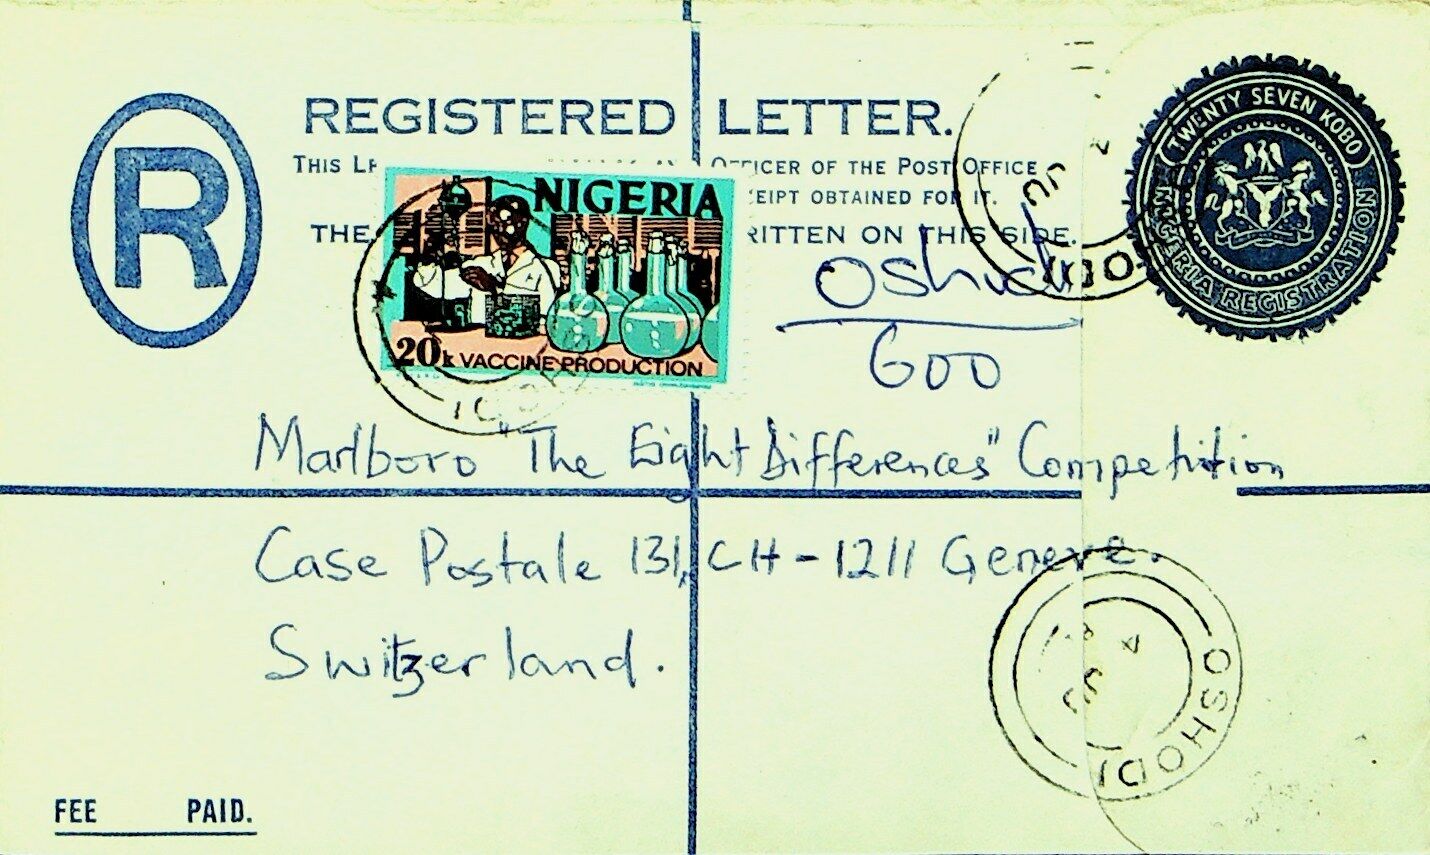 REGISTERED LETTER.
R
THIS OFFICER OF THE POST OFFICE
OBTAINED FOR IT.
THE WRITTEN ON THIS SIDE.
TWENTY SEVEN KOBO
NIGERIA REGISTRATION
NIGERIA
20k VACCINE PRODUCTION
Oshodi
600
Marlboro "The Eight Differences" Competition
Case Postale 131, CH-1211 Geneve.
Switzerland.
OSHODI
FEE PAID.